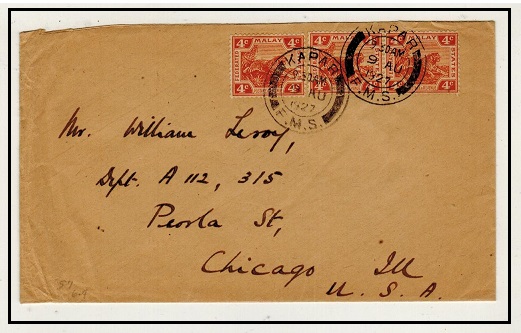 4c MALAY 4c
FEDERATED
4c
4c
MALAY
4c
4c
STATES
4c
KAPAR
9.30AM
AU
1927
F.M.S.
KAPAR
9.30AM
9 AU
1927
F.M.S.
Mr. William Leroy,
Dept. A 112, 315
Peoria St,
Chicago Ill
U. S. A.